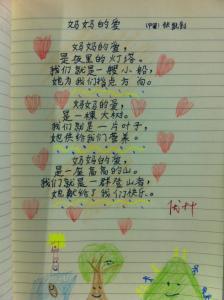 妈妈的爱
妈妈的爱,
是夜里的灯塔。
我们就是一艘小船,
她为我们指点方向。
妈妈的爱,
是一棵大树。
我们就是一片叶子,
她供给我们营养。
妈妈的爱,
是一座高高的山。
我们就是一群登山者,
她献给了我们快乐。